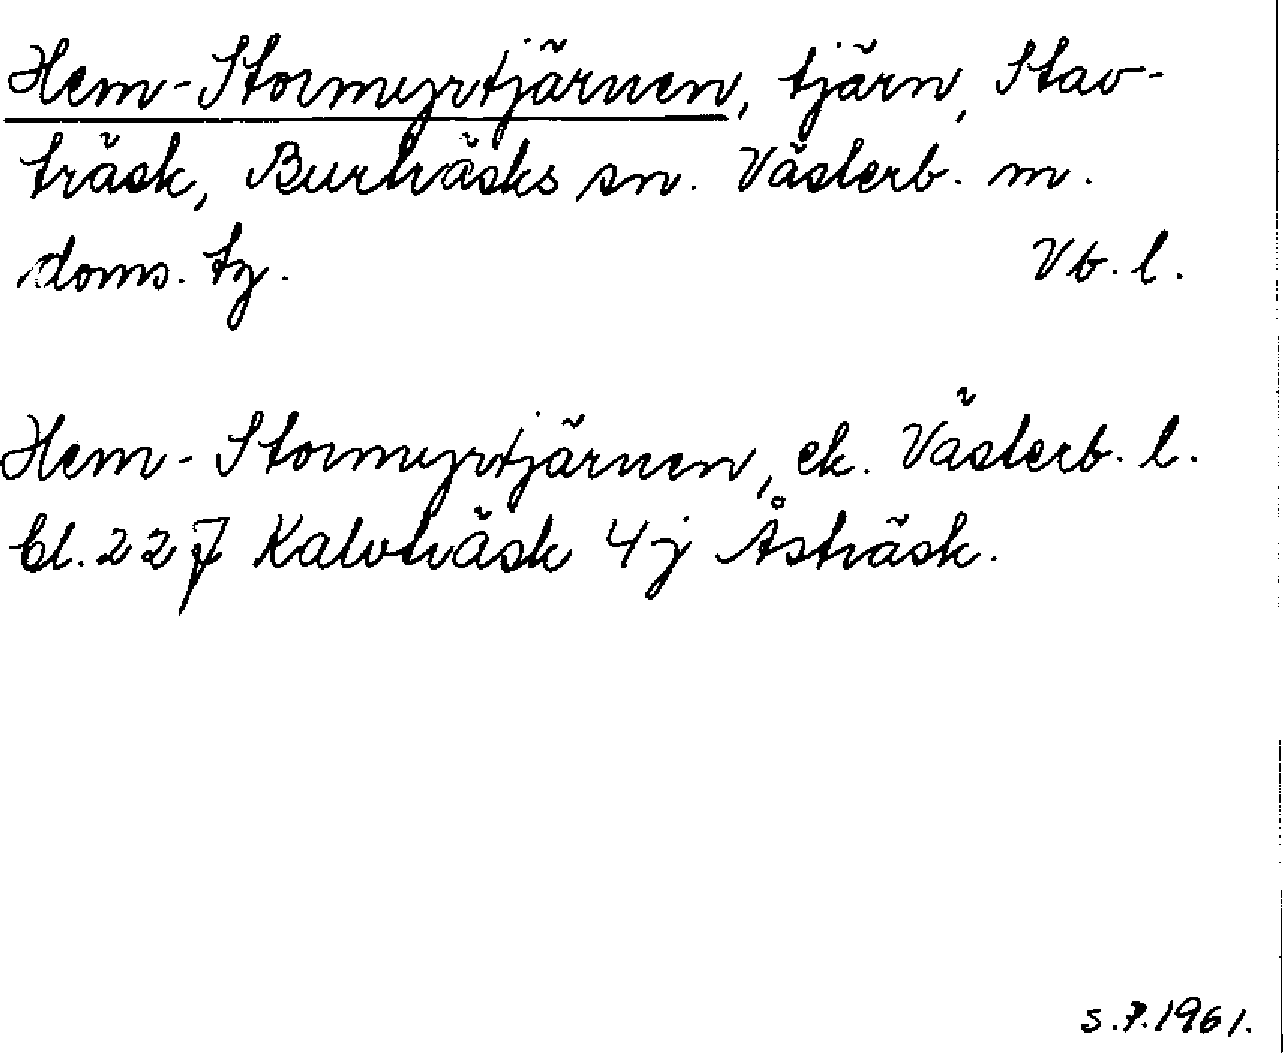 Hem-Stormyrtjärnen, tjärn, Stav-
träsk, Burträsks sn. Västerb. m.
doms. tg. Vb. l.
Hem-Stormyrtjärnen, ek. Västerb. l.
bl. 227 Kalvträsk 4j Åsträsk.
S.P.1961.